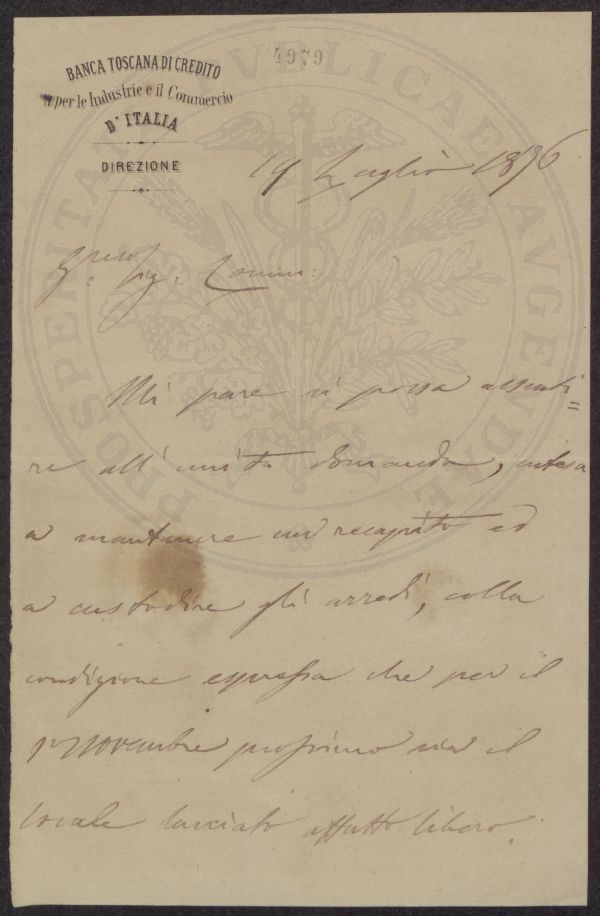 4979
BANCA TOSCANA DI CREDITO
per le Industrie e il Commercio
D'ITALIA
DIREZIONE
19 Luglio 1896
Sig. Comm:
Mi pare si possa assenti=
re all'unita domanda, intesa
a mantenere un recapito ed
a custodire gli arredi, colla
condizione espressa che per il
1º novembre prossimo sia il
locale lasciato affatto libero.
PROSPERITATI PVBLICAE AVGENDAE